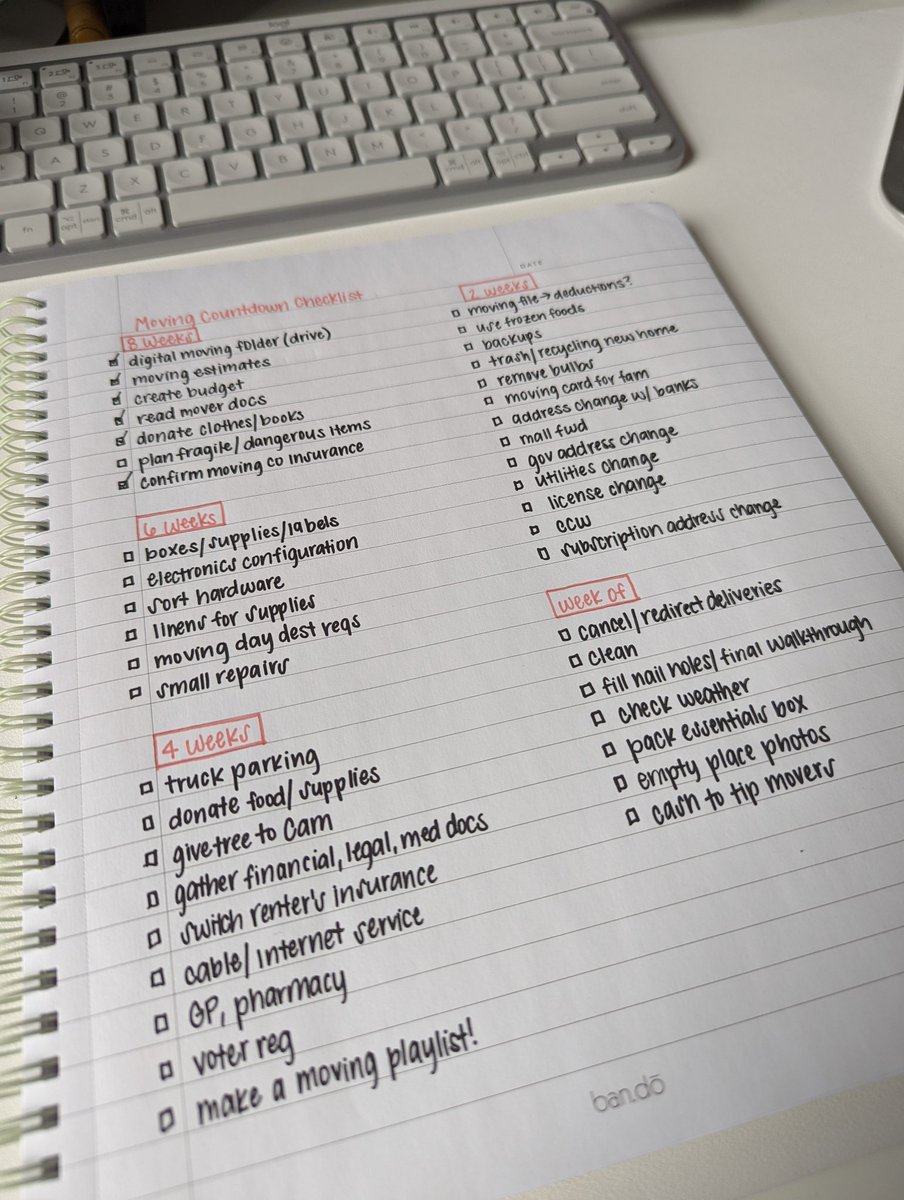 logi
DATE
Moving Countdown Checklist
8 weeks
digital moving folder (drive)
moving estimates
create budget
read mover docs
donate clothes/books
plan fragile/dangerous items
confirm moving co insurance
6 weeks
boxes/supplies/labels
electronics configuration
sort hardware
linens for supplies
moving day dest reqs
small repairs
4 weeks
truck parking
donate food/supplies
give tree to Cam
gather financial, legal, med docs
switch renter's insurance
cable/internet service
GP, pharmacy
voter reg
make a moving playlist!
2 weeks
moving file → deductions?
use frozen foods
backups
trash/recycling new home
remove bulbs
moving card for fam
address change w/ banks
mail fwd
gov address change
utilities change
license change
ccw
subscription address change
week of
cancel/redirect deliveries
clean
fill nail holes/final walkthrough
check weather
pack essentials box
empty place photos
cash to tip movers
ban.dō